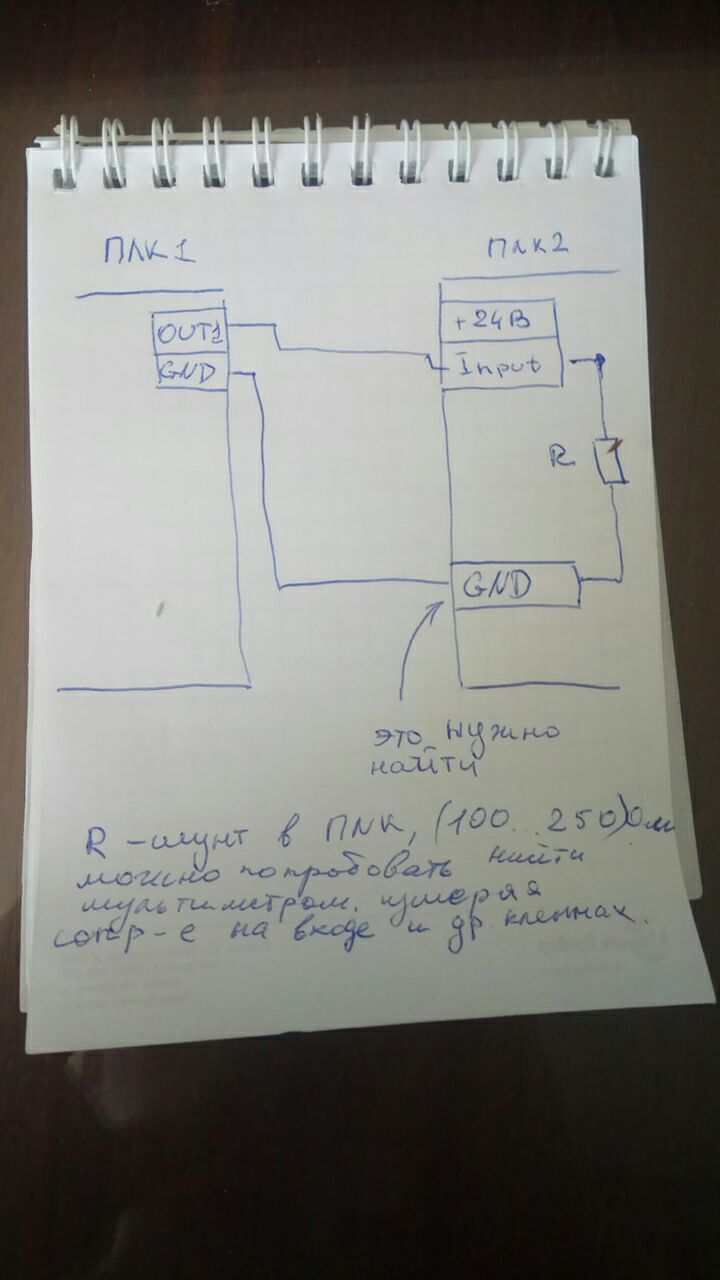 ПЛК1
ПЛК2
OUT1
GND
+24В
Input
R
GND
это нужно
найти
R - шунт в ПЛК, (100...250)Ом
можно попробовать найти
мультиметром. измеряя
сопр-е на входе и др клеммах.